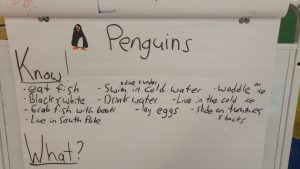 Penguins
Know!
dive & under on
- eat fish - Swim in cold water - waddle ice
- Black & white - Drink water - Live in the cold ice
- Grab fish with beak - lay eggs - slide on tummies
- Live in South Pole & backs
What?